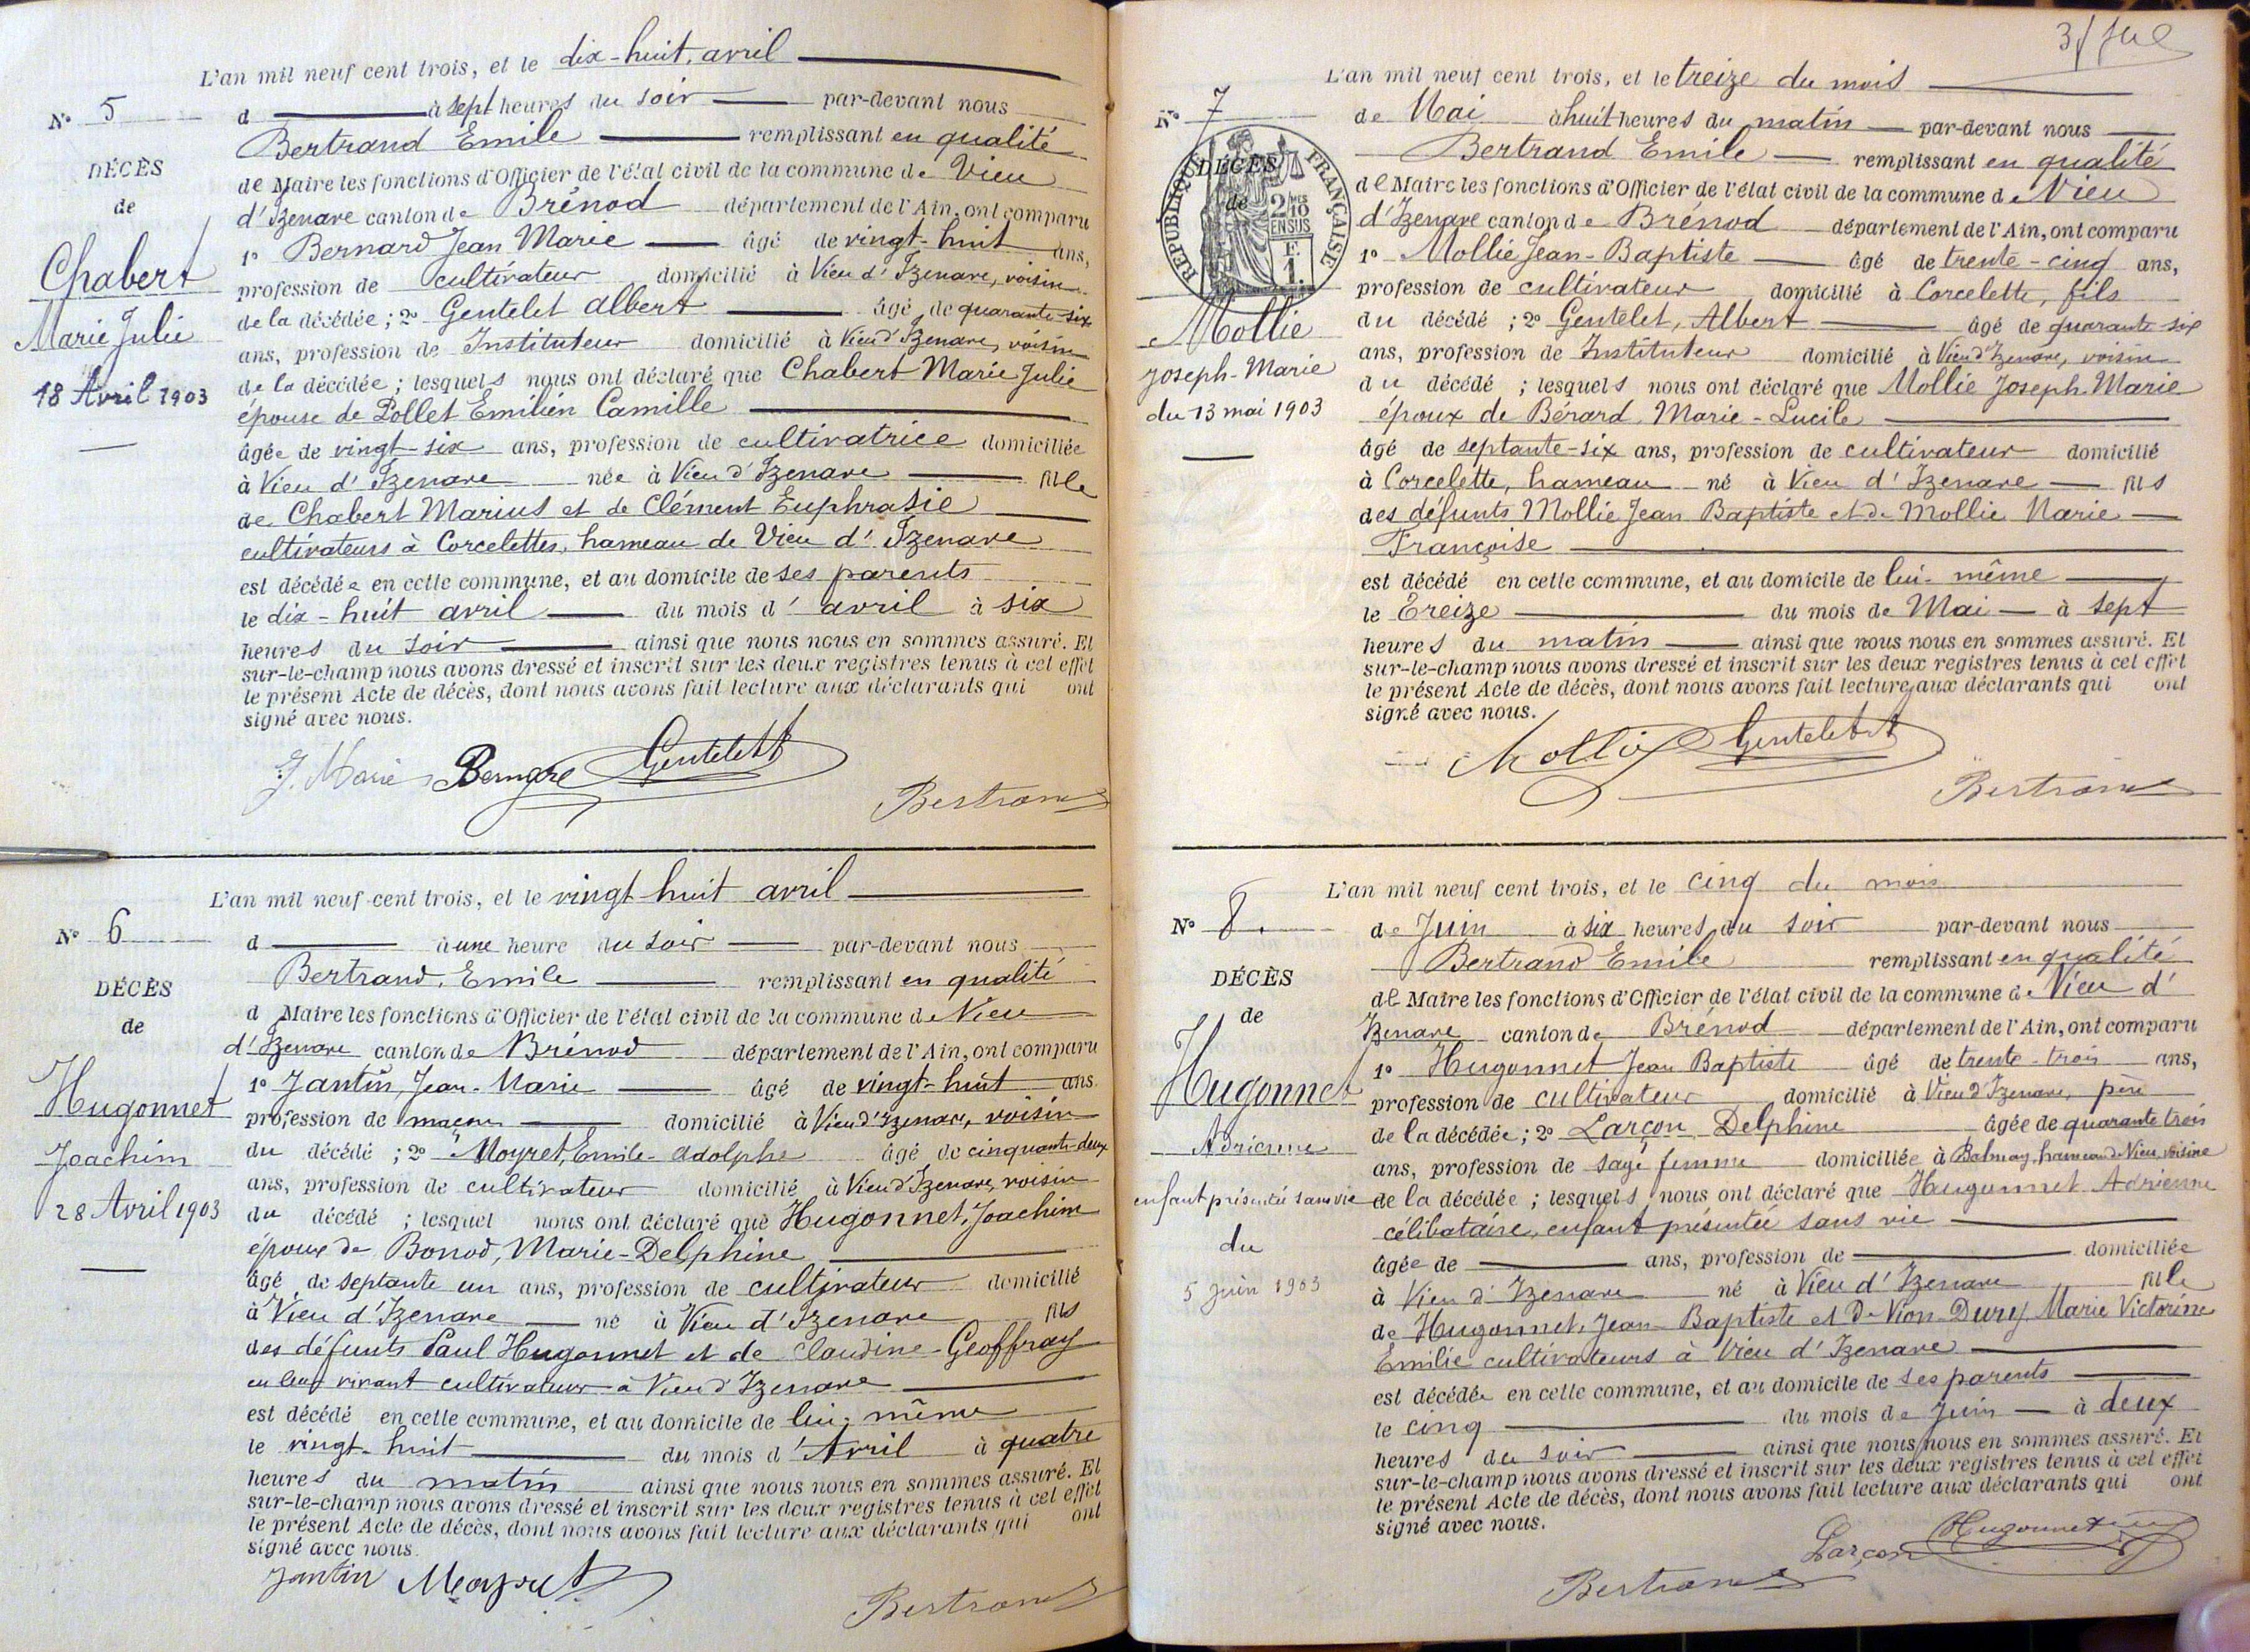 L'an mil neuf cent trois, et le dix-huit avril
N° 5
d à sept heures du soir par-devant nous
Bertrand Emile remplissant en qualité
DÉCÈS
de Maire les fonctions d'Officier de l'état civil de la commune de Vieu
de
d'Izenave canton de Brénod département de l'Ain, ont comparu
1° Bernard Jean Marie âgé de vingt-huit ans,
Chabert
profession de cultivateur domicilié à Vieu d'Izenave, voisin
de la décédée ; 2° Gentelet Albert âgé de quarante-six
Marie Julie
ans, profession de Instituteur domicilié à Vieu d'Izenave, voisin
18 Avril 1903
de la décédée ; lesquels nous ont déclaré que Chabert Marie Julie
épouse de Pollet Emilien Camille
âgée de vingt-six ans, profession de cultivatrice domiciliée
à Vieu d'Izenave née à Vieu d'Izenave fille
de Chabert Marius et de Clément Euphrasie
cultivateurs à Corcelettes, hameau de Vieu d'Izenave
est décédée en cette commune, et au domicile de ses parents
le dix-huit avril du mois d'avril à six
heures du soir ainsi que nous nous en sommes assuré. Et
sur-le-champ nous avons dressé et inscrit sur les deux registres tenus à cet effet
le présent Acte de décès, dont nous avons fait lecture aux déclarants qui ont
signé avec nous.
J. Marie Gentelet A
Bertrand
L'an mil neuf cent trois, et le vingt-huit avril
N° 6
d à une heure du soir par-devant nous
Bertrand, Emile remplissant en qualité
DÉCÈS
d Maire les fonctions d'Officier de l'état civil de la commune de Vieu
de
d'Izenave canton de Brénod département de l'Ain, ont comparu
1° Jantin, Jean-Marie âgé de vingt-huit ans.
Hugonnet
profession de maçon domicilié à Vieu d'Izenave, voisin
du décédé ; 2° Moyret, Emile-Adolphe âgé de cinquante-deux
Joachim
ans, profession de cultivateur domicilié à Vieu d'Izenave, voisin
28 Avril 1903
du décédé ; lesquel nous ont déclaré que Hugonnet, Joachim
époux de Bonod, Marie-Delphine
âgé de septante un ans, profession de cultivateur domicilié
à Vieu d'Izenave né à Vieu d'Izenave fils
des défunts Paul Hugonnet et de Claudine-Geoffray
en leur vivant cultivateurs à Vieu d'Izenave
est décédé en cette commune, et au domicile de lui-même
le vingt-huit du mois d'Avril à quatre
heures du matin ainsi que nous nous en sommes assuré. Et
sur-le-champ nous avons dressé et inscrit sur les deux registres tenus à cet effet
le présent Acte de décès, dont nous avons fait lecture aux déclarants qui ont
signé avec nous.
Jantin Moyret
Bertrand
L'an mil neuf cent trois, et le treize du mois
N° 7
de Mai à huit heures du matin par-devant nous
Bertrand Emile remplissant en qualité
DÉCÈS
de
RÉPUBLIQUE FRANÇAISE
2/10 EN SUS
F. 1.
de Maire les fonctions d'Officier de l'état civil de la commune de Vieu
d'Izenave canton de Brénod département de l'Ain, ont comparu
1° Mollie Jean-Baptiste âgé de trente-cinq ans,
profession de cultivateur domicilié à Corcelette, fils
Mollie
du décédé ; 2° Gentelet, Albert âgé de quarante six
Joseph-Marie
ans, profession de Instituteur domicilié à Vieu d'Izenave, voisin
du décédé ; lesquels nous ont déclaré que Mollie Joseph-Marie
du 13 mai 1903
époux de Bérard, Marie-Lucile
âgé de septante-six ans, profession de cultivateur domicilié
à Corcelette, hameau né à Vieu d'Izenave fils
des défunts Mollie Jean Baptiste et de Mollie Marie
Françoise
est décédé en cette commune, et au domicile de lui-même
le Treize du mois de Mai à sept
heures du matin ainsi que nous nous en sommes assuré. Et
sur-le-champ nous avons dressé et inscrit sur les deux registres tenus à cet effet
le présent Acte de décès, dont nous avons fait lecture aux déclarants qui ont
signé avec nous.
Mollie Gentelet A
Bertrand
L'an mil neuf cent trois, et le cinq du mois
N° 8.
de Juin à six heures du soir par-devant nous
Bertrand Emile remplissant en qualité
DÉCÈS
de Maire les fonctions d'Officier de l'état civil de la commune de Vieu d'
de
Izenave canton de Brénod département de l'Ain, ont comparu
1° Hugonnet Jean Baptiste âgé de trente-trois ans,
Hugonnet
profession de cultivateur domicilié à Vieu d'Izenave, père
de la décédée ; 2° Larçon Delphine âgée de quarante trois
Adrienne
ans, profession de sage femme domiciliée à Balmay, hameau de Vieu, voisine
enfant présentée sans vie
de la décédée ; lesquels nous ont déclaré que Hugonnet Adrienne
célibataire, enfant présentée sans vie
du
âgée de ans, profession de domiciliée
5 Juin 1903
à Vieu d'Izenave né à Vieu d'Izenave fille
de Hugonnet, Jean-Baptiste et de Vion-Dury Marie Victorine
Emilie cultivateurs à Vieu d'Izenave
est décédée en cette commune, et au domicile de ses parents
le cinq du mois de Juin à deux
heures du soir ainsi que nous nous en sommes assuré. Et
sur-le-champ nous avons dressé et inscrit sur les deux registres tenus à cet effet
le présent Acte de décès, dont nous avons fait lecture aux déclarants qui ont
signé avec nous.
Larçon Hugonnet
Bertrand